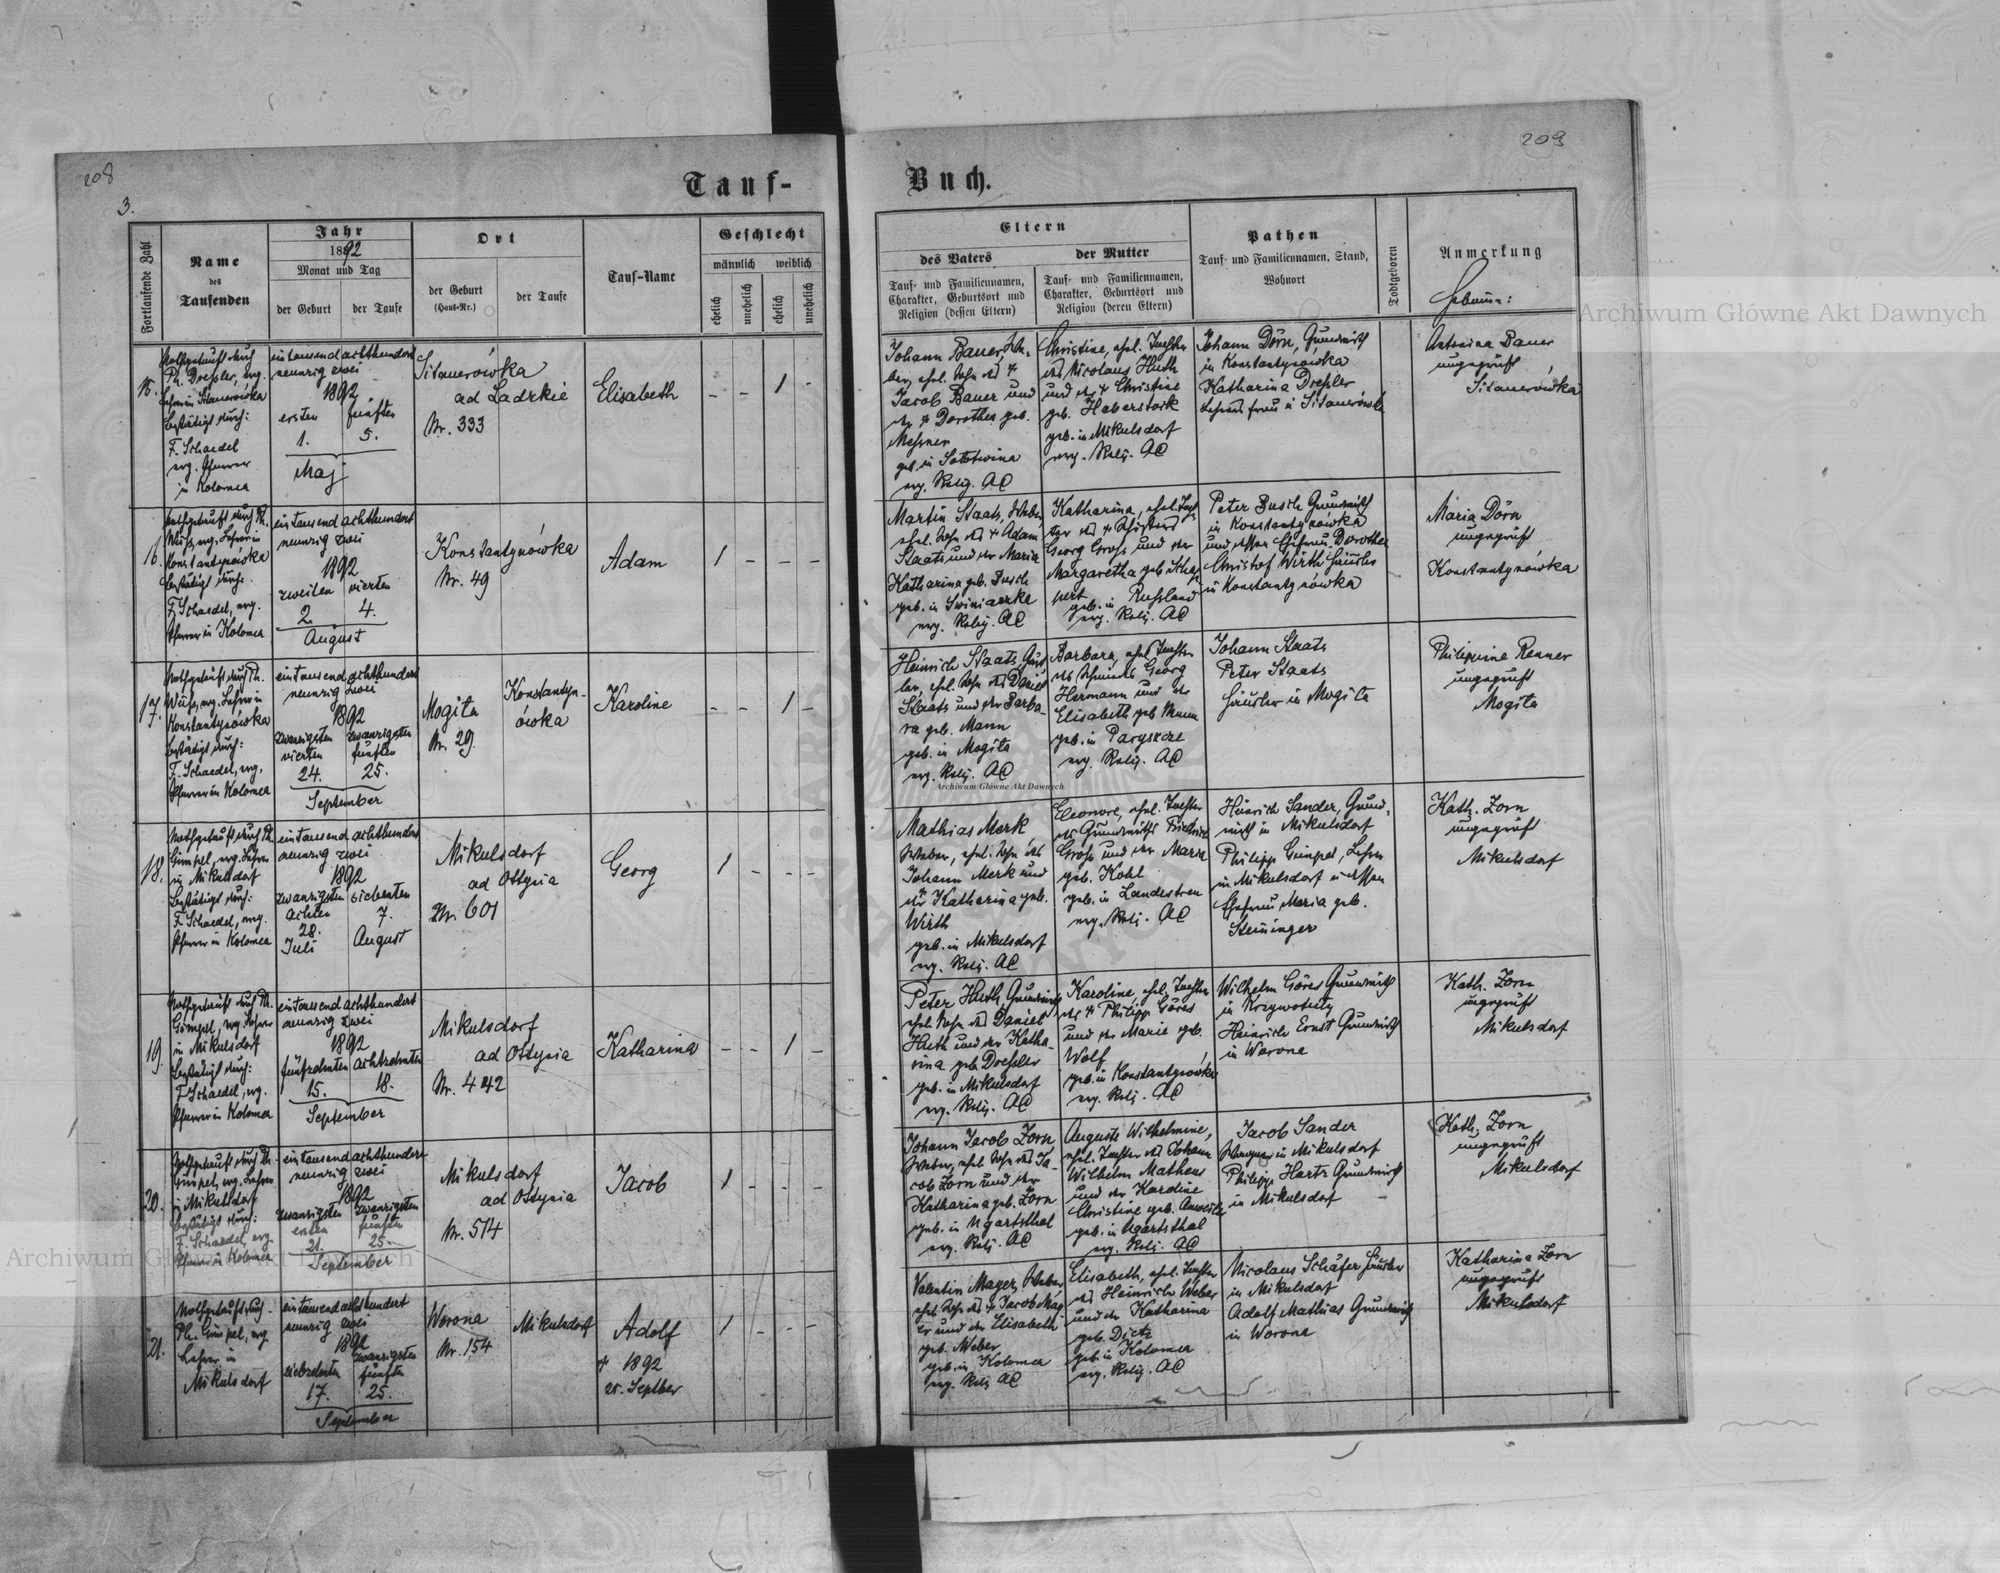 208
209
3.
Tauf-
Buch.
Fortlaufende Zahl
Name
des
Taufenden
Jahr
1892
Monat und Tag
der Geburt
der Taufe
Ort
der Geburt
(Haus-Nr.)
der Taufe
Tauf-Name
Geschlecht
männlich
weiblich
ehelich
unehelich
ehelich
unehelich
Eltern
des Vaters
Tauf- und Familiennamen,
Charakter, Geburtsort und
Religion (dessen Eltern)
der Mutter
Tauf- und Familiennamen,
Charakter, Geburtsort und
Religion (deren Eltern)
Pathen
Tauf- und Familiennamen, Stand,
Wohnort
Todtgeboren
Anmerkung
15.
Nothgetauft durch
Ph. Dressler, evg.
Lehrer in Sitauerówka
bestätigt durch:
F. Schaedel
evg. Pfarrer
in Kolomea
eintausend achthundert
neunzig zwei
1892
ersten fünften
1. 5.
Maj
Sitauerówka
ad Ladzkie
Nr. 333
Elisabeth
- - 1 -
Johann Bauer, We-
ber, ehel. Sohn des †
Jacob Bauer und
der † Dorothea geb.
Messner
geb. in Solotwina
evg. Relig. AC
Christine, ehel. Tochter
des Nicolaus Huth
und der † Christine
geb. Haberstock
geb. in Mikulsdorf
evg. Relig. AC
Johann Dörn, Grundwirth
in Konstantynówka
Katharina Dressler
Lehrersfrau in Sitauerówka
Antonina Bauer
ungeprüft
Sitauerówka
16.
Nothgetauft durch Ph.
Weiss, evg. Lehrer in
Konstantynówka
bestätigt durch:
F. Schaedel, evg.
Pfarrer in Kolomea
eintausend achthundert
neunzig zwei
1892
zweiten vierten
2. 4.
August
Konstantynówka
Nr. 49
Adam
1 - - -
Martin Staats, Weber,
ehel. Sohn des † Adam
Staats und der Maria
Katharina geb. Busch
geb. in Swiniarka
evg. Relig. AC
Katharina, ehel. Toch-
ter des †
Georg Gross und der
Margaretha geb.
geb. in Russland
evg. Relig. AC
Peter Busch Grundwirth
in Konstantynówka
und dessen Ehefrau Dorothea
Christof Wirth Häusler
in Konstantynówka
Maria Dörn
ungeprüft
Konstantynówka
17.
Nothgetauft durch Ph.
Weiss, evg. Lehrer in
Konstantynówka
bestätigt durch:
F. Schaedel, evg.
Pfarrer in Kolomea
eintausend achthundert
neunzig zwei
1892
zwanzigsten zwanzigsten
vierten fünften
24. 25.
September
Mogiła
Nr. 29.
Konstantyn-
ówka
Karoline
- - 1 -
Heinrich Staats, Häus-
ler, ehel. Sohn des Daniel
Staats und der Barba-
ra geb. Mann
geb. in Mogiła
evg. Relig. AC
Barbara, ehel. Tochter
des Schmieds Georg
Hermann und der
Elisabeth geb. Mann
geb. in Paryszcze
evg. Relig. AC
Johann Staats
Peter Staats
Häusler in Mogiła
Philippine Renner
ungeprüft
Mogiła
18.
Nothgetauft durch Ph.
Gimpel, evg. Lehrer
in Mikulsdorf
bestätigt durch:
F. Schaedel, evg.
Pfarrer in Kolomea
eintausend achthundert
neunzig zwei
1892
zwanzigsten siebenten
achten 7.
28.
Juli August
Mikulsdorf
ad Ottynia
Nr. 601
Georg
1 - - -
Mathias Merk
Weber, ehel. Sohn des
Johann Merk und
der Katharina geb.
Wirth
geb. in Mikulsdorf
evg. Relig. AC
Eleonore, ehel. Tochter
des Grundwirths Friedrich
Gross und der Maria
geb. Kohl
geb. in Landestreu
evg. Relig. AC
Heinrich Sander, Grund-
wirth in Mikulsdorf
Philipp Gimpel, Lehrer
in Mikulsdorf u. dessen
Ehefrau Maria geb.
Steininger
Kath. Zorn
ungeprüft
Mikulsdorf
19.
Nothgetauft durch Ph.
Gimpel, evg. Lehrer
in Mikulsdorf
bestätigt durch:
F. Schaedel, evg.
Pfarrer in Kolomea
eintausend achthundert
neunzig zwei
1892
fünfzehnten achtzehnten
15. 18.
September
Mikulsdorf
ad Ottynia
Nr. 442
Katharina
- - 1 -
Peter Huth Grundwirth,
ehel. Sohn des Daniel
Huth und der Katha-
rina geb. Dressler
geb. in Mikulsdorf
evg. Relig. AC
Karoline, ehel. Tochter
des † Philipp Göres
und der Marie geb.
Wolf
geb. in Konstantynówka
evg. Relig. AC
Wilhelm Göres Grundwirth
in Krzywotuły
Heinrich Ernst Grundwirth
in Worona
Kath. Zorn
ungeprüft
Mikulsdorf
20.
Nothgetauft durch Ph.
Gimpel, evg. Lehrer
in Mikulsdorf
bestätigt durch:
F. Schaedel, evg.
Pfarrer in Kolomea
eintausend achthundert
neunzig zwei
1892
zwanzigsten zwanzigsten
ersten fünften
21. 25.
September
Mikulsdorf
ad Ottynia
Nr. 514
Jacob
1 - - -
Johann Jacob Zorn
Weber, ehel. Sohn des Ja-
cob Zorn und der
Katharina geb. Zorn
geb. in Ugartsthal
evg. Relig. AC
Auguste Wilhelmine,
ehel. Tochter des Johann
Wilhelm Matheus
und der Karoline
Christine geb.
geb. in Ugartsthal
evg. Relig. AC
Jacob Sander
in Mikulsdorf
Philipp Hartz Grundwirth
in Mikulsdorf
Kath. Zorn
ungeprüft
Mikulsdorf
21.
Nothgetauft durch
Ph. Gimpel, evg.
Lehrer in
Mikulsdorf
eintausend achthundert
neunzig zwei
1892
siebzehnten zwanzigsten
fünften
17. 25.
September
Worona
Nr. 154
Mikulsdorf
Adolf
† 1892
25. Septber
1 - - -
Valentin Mayer, Weber,
ehel. Sohn des † Jacob May-
er und der Elisabeth
geb. Weber
geb. in Kolomea
evg. Relig. AC
Elisabeth, ehel. Tochter
des Heinrich Weber
und der Katharina
geb. Dietz
geb. in Kolomea
evg. Relig. AC
Nicolaus Schäfer Häusler
in Mikulsdorf
Adolf Mathias Grundwirth
in Worona
Katharina Zorn
ungeprüft
Mikulsdorf
Archiwum Główne Akt Dawnych
Archiwum Główne Akt Dawnych
Archiwum Główne Akt Dawnych